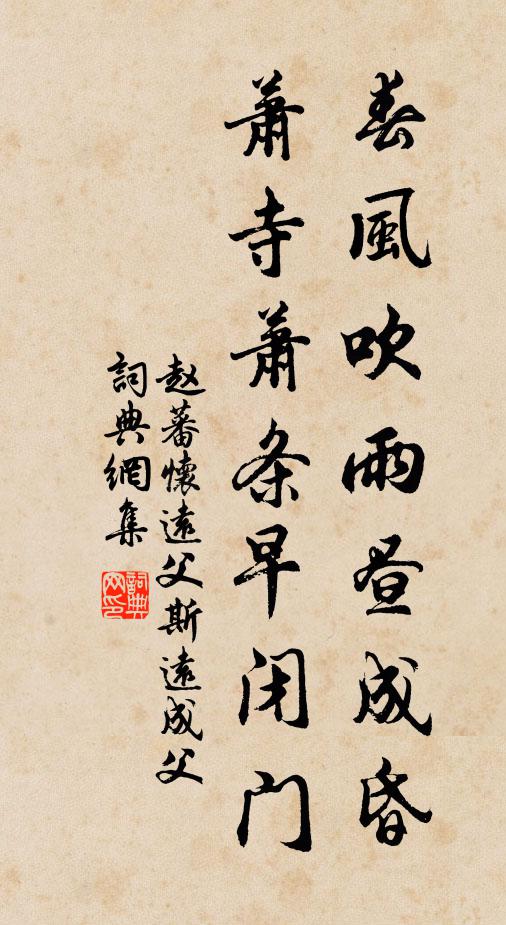 春風吹雨昼成昏
蕭寺蕭条早闭门
赵蕃懷遠父斯遠成父
詞典網集
詞典网印